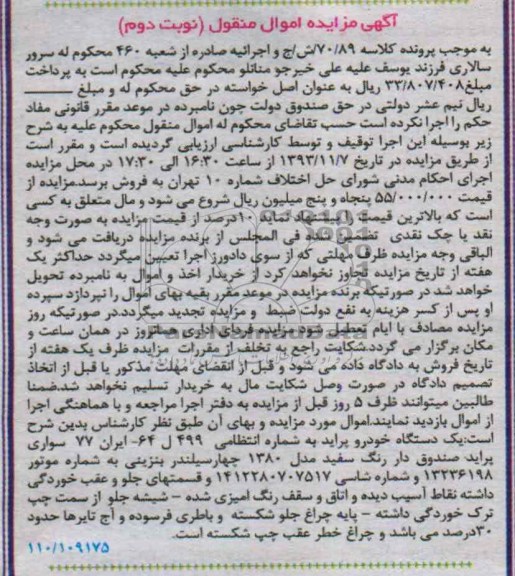 آگهی مزایده اموال منقول (نوبت دوم)
به موجب پرونده کلاسه ۷۰/۸۹/ش/ج و اجرائیه صادره از شعبه ۴۶۰ محکوم له سرور
سالاری فرزند یوسف علیه علی خیرجو منانلو محکوم علیه محکوم است به پرداخت
مبلغ۳۳/۸۰۷/۴۰۸ ریال به عنوان اصل خواسته در حق محکوم له و مبلغ
ریال نیم عشر دولتی در حق صندوق دولت چون نامبرده در موعد مقرر قانونی مفاد
حکم را اجرا نکرده است حسب تقاضای محکوم له اموال منقول محکوم علیه به شرح
زیر بوسیله این اجرا توقیف و توسط کارشناسی ارزیابی گردیده است و مقرر است
از طریق مزایده در تاریخ ۱۳۹۳/۱۱/۷ از ساعت ۱۶:۳۰ الی ۱۷:۳۰ در محل مزایده
اجرای احکام مدنی شورای حل اختلاف شماره ۱۰ تهران به فروش برسد.مزایده از
قیمت ۵۵/۰۰۰/۰۰۰ پنجاه و پنج میلیون ریال شروع می شود و مال متعلق به کسی
است که بالاترین قیمت را پیشنهاد نماید ۱۰درصد از قیمت مزایده به صورت وجه
نقد یا چک نقدی تضمین شده فی المجلس از برنده مزایده دریافت می شود و
الباقی وجه مزایده ظرف مهلتی که از سوی دادورز اجرا تعیین میگردد حداکثر یک
هفته از تاریخ مزایده تجاوز نخواهد کرد از خریدار اخذ و اموال به نامبرده تحویل
خواهد شد در صورتیکه برنده مزایده در موعد مقرر بقیه بهای اموال را نپردازد سپرده
او پس از کسر هزینه به نفع دولت ضبط و مزایده تجدید میگردد.در صورتیکه روز
مزایده مصادف با ایام تعطیل شود مزایده فردای اداری همانروز در همان ساعت و
مکان برگزار می گردد.شکایت راجع به تخلف از مقررات مزایده ظرف یک هفته از
تاریخ فروش به دادگاه داده می شود و قبل از انقضای مهلت مذکور یا قبل از اتخاذ
تصمیم دادگاه در صورت وصل شکایت مال به خریدار تسلیم نخواهد شد.ضمنا
طالبین میتوانند ظرف ۵ روز قبل از مزایده به دفتر اجرا مراجعه و با هماهنگی اجرا
از اموال بازدید نمایند.اموال مورد مزایده و بهای آن طبق نظر کارشناس بدین شرح
است:یک دستگاه خودرو پراید به شماره انتظامی ۴۹۹ ل ۶۴- ایران ۷۷ سواری
پراید صندوق دار رنگ سفید مدل ۱۳۸۰ چهارسیلندر بنزینی به شماره موتور
۱۳۲۳۶۱۹۸ و شماره شاسی ۱۴۱۲۲۸۰۷۰۷۵۱۷ و قسمتهای جلو و عقب خوردگی
داشته نقاط آسیب دیده و اتاق و سقف رنگ امیزی شده - شیشه جلو از سمت چپ
ترک خوردگی داشته - پایه چراغ جلو شکسته و باطری فرسوده و آج تایرها حدود
۳۰درصد می باشد و چراغ خطر عقب چپ شکسته است.
۱۱۰/۱۰۹۱۷۵